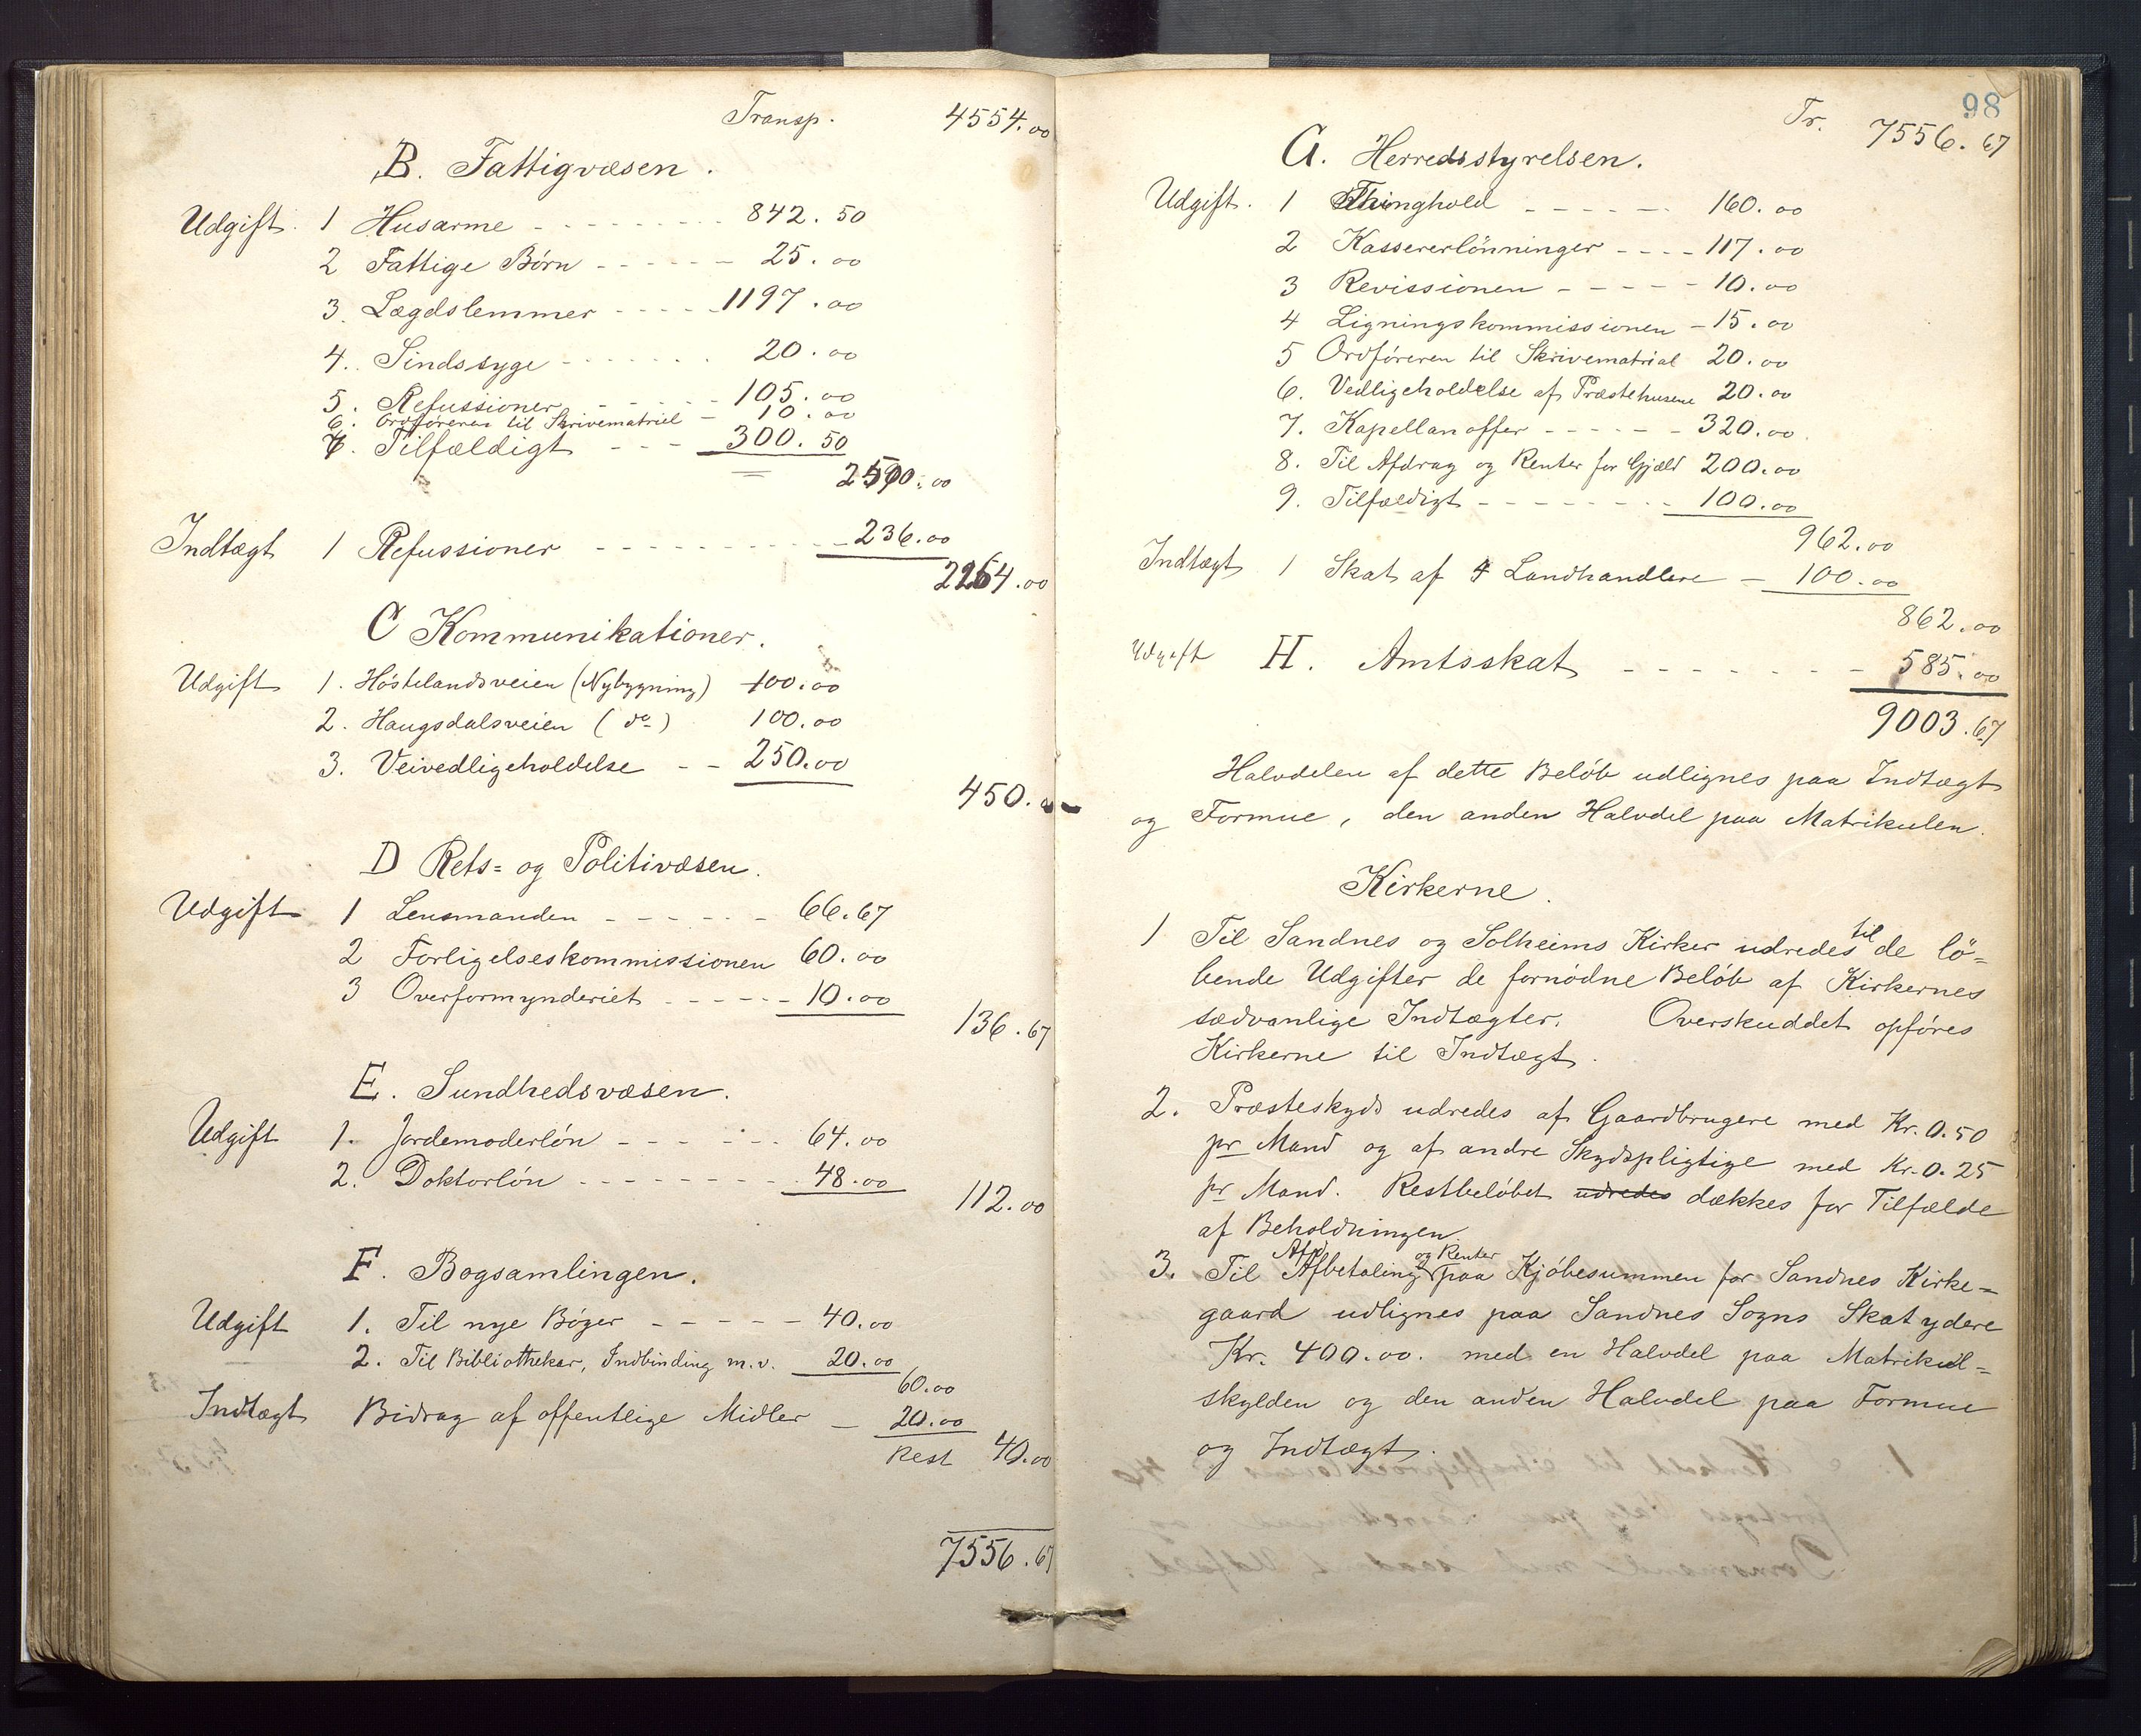 Transp. 4554.00
B. Fattigvæsen.
Udgift. 1 Husarme - - - - - - - 842.50
2 Fattige Børn - - - - - - 25.00
3. Lægdslemmer - - - - - 1197.00
4. Sindssyge - - - - - - 20.00
5. Refussioner - - - - - 105.00
6. Ordføreren til Skrivematriel - 10.00
7. Tilfældigt - - - 300.50
2500.00
Indtægt 1 Refussioner - - - - - - - - - - 236.00
2264.00
C Kommunikationer.
Udgift 1. Höstelandsveien (Nybygning) 100.00
2. Haugsdalsveien (do) 100.00
3. Veivedligeholdelse - - 250.00
450.00
D Rets= og Politivæsen.
Udgift 1 Lensmanden - - - - - - 66.67
2 Forligelseskommissionen 60.00
3 Overformynderiet - - - - - - 10.00
136.67
E. Sundhedsvæsen.
Udgift 1. Jordemoderlön - - - - - - 64.00
2. Doktorlön - - - - - - - - 48.00
112.00
F. Bogsamlingen.
Udgift 1. Til nye Bøger - - - - - 40.00
2. Til Bibliothekar, Indbinding m.v. 20.00
60.00
Indtægt Bidrag af offentlige Midler - 20.00
Rest 40.00
7556.67
98
Tr. 7556.67
G. Herredsstyrelsen.
Udgift. 1 Thinghold - - - - - 160.00
2 Kassererlönninger - - - - 117.00
3 Revissionen - - - - - 10.00
4 Ligningskommissionen - 15.00
5 Ordföreren til Skrivematrial 20.00
6. Vedligeholdelse af Præstehusene 20.00
7. Kapellanoffer - - - - - - 320.00
8. Til Afdrag og Renter for Gjæld 200.00
9. Tilfældigt - - - - - - - - 100.00
962.00
Indtægt 1 Skat af 4 Landhandlere - 100.00
862.00
Udgift H. Amtsskat - - - - - - - 585.00
9003.67
Halvdelen af dette Belöb udlignes paa Indtægt
og Formue, den anden Halvdel paa Matrikulen.
Kirkerne.
1 Til Sandnes og Solheims Kirker udredes til de lö=
bende Udgifter de fornödne Belöb af Kirkernes
sædvanlige Indtægter. Overskuddet opföres
Kirkerne til Indtægt.
2. Præsteskyds udredes af Gaardbrugere med Kr. 0.50
pr Mand og af andre Skydspligtige med Kr. 0.25
pr Mand. Restbelöbet udredes dækkes for Tilfælde
af Beholdningen.
3. Til Afbetaling og Renter paa Kjöbesummen for Sandnes Kirke=
gaard udlignes paa Sandnes Sogns Skatydere
Kr. 400.00. med en Halvdel paa Matrikul=
skylden og den anden Halvdel paa Formue
og Indtægt.